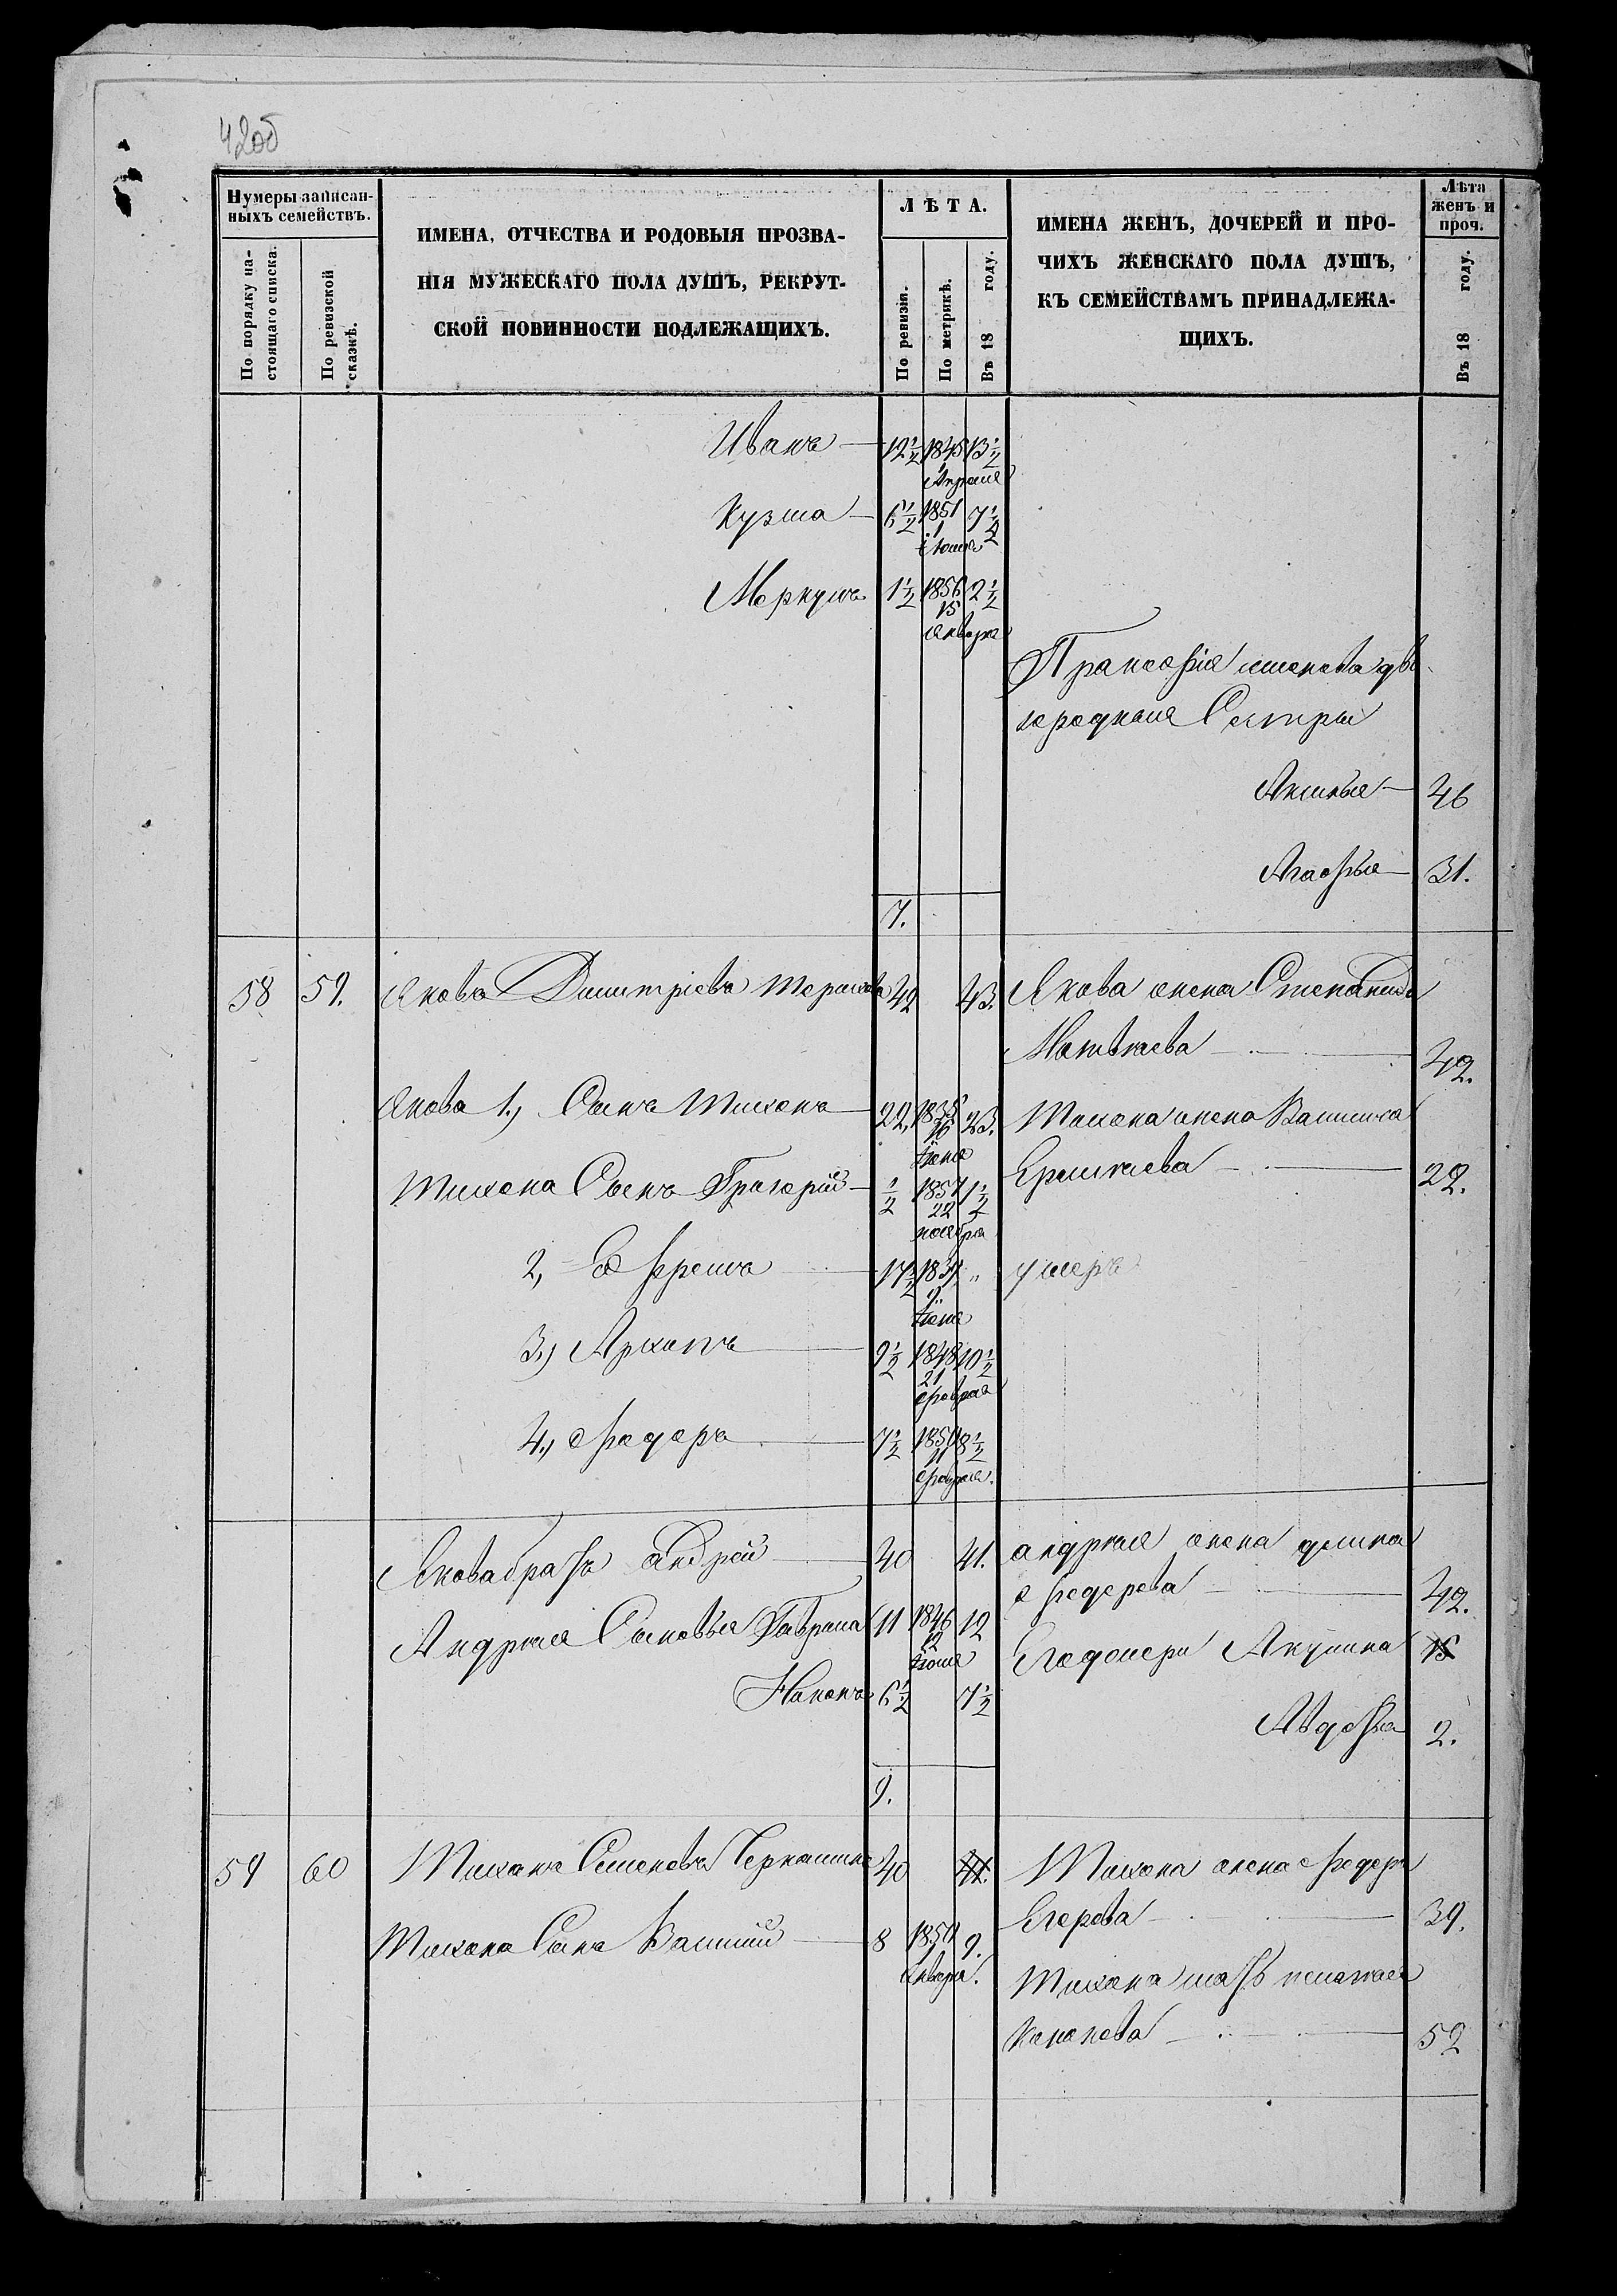 42об
Нумеры записан-
ныхъ семействъ.
По порядку на-
стоящаго списка.
По ревизской
сказкѣ.
ИМЕНА, ОТЧЕСТВА И РОДОВЫЯ ПРОЗВА-
НІЯ МУЖЕСКАГО ПОЛА ДУШЪ, РЕКРУТ-
СКОЙ ПОВИННОСТИ ПОДЛЕЖАЩИХЪ.
ЛѢТА.
По ревизіи.
По метрикѣ.
Въ 18 году.
ИМЕНА ЖЕНЪ, ДОЧЕРЕЙ И ПРО-
ЧИХЪ ЖЕНСКАГО ПОЛА ДУШЪ,
КЪ СЕМЕЙСТВАМЪ ПРИНАДЛЕЖА-
ЩИХЪ.
Лѣта
женъ и
проч.
Въ 18 году.
Иванъ 12½ 1845 13½
1 Апреля
Кузма 6½ 1851 7½
1
Меркулъ 1½ 1856 2½
15
Января
двою
родныя Сестры
Аксинья 46
Агафья 31.
7.
58 59. Яковъ Димитріевъ 42 43. Якова жена Степанида
Матвѣева 42.
Якова 1.) Сынъ Тихонъ 22, 1835 23. Тихона жена Василиса
16
Тихона Сынъ Григорій ½ 1857 1½ Ермилаева 22.
22
ноября
2, Ефремъ 17½ 18 " умеръ
3.) Архипъ 9½ 1848 10½
21
февраля
4.) Федоръ 7½ 1850 8½
11
февраля.
Якова братъ Андрей 40 41. Андрея жена
Федорова 42.
Андрея Сыновья Гаврила 11 1846 12
12
Его дочери Акулина 15
Никонъ 6½ 7½
Авдотья 2.
9.
59 60 Тихонъ Семеновъ 40 41. Тихона жена
Егорова 39.
Тихона Сынъ Василий 8 1850 9.
Января.
Тихона мать Пелагея
Кононова 52